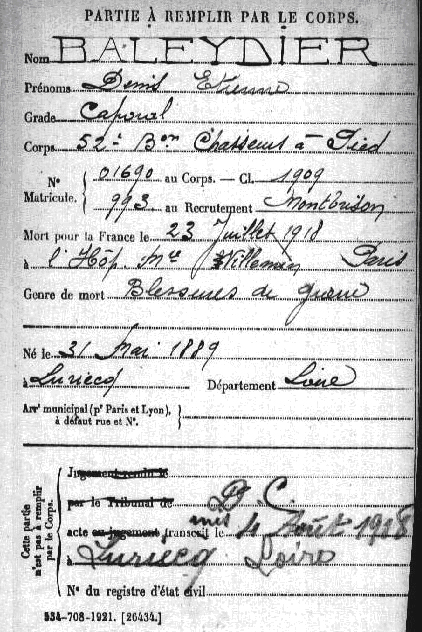 PARTIE À REMPLIR PAR LE CORPS.
Nom BALEYDIER
Prénoms Denis Etienne
Grade Caporal
Corps 52e Bon Chasseurs à Pied
N° Matricule. { 01690 au Corps. — Cl. 1909
993 au Recrutement Montbrison
Mort pour la France le 23 Juillet 1918
à l'Hôp Mre Villemin Paris
Genre de mort Blessures de guerre
Né le 31 Mai 1889
à Luriecq Département Loire
Arrt municipal (pr Paris et Lyon), à défaut rue et N°. }
Cette partie n'est pas à remplir par le Corps.
Jugement rendu le
par le Tribunal de C.
acte ou jugement transcrit le 4 Août 1918
à Luriecq Loire
N° du registre d'état civil
534-708-1921. [26434.]